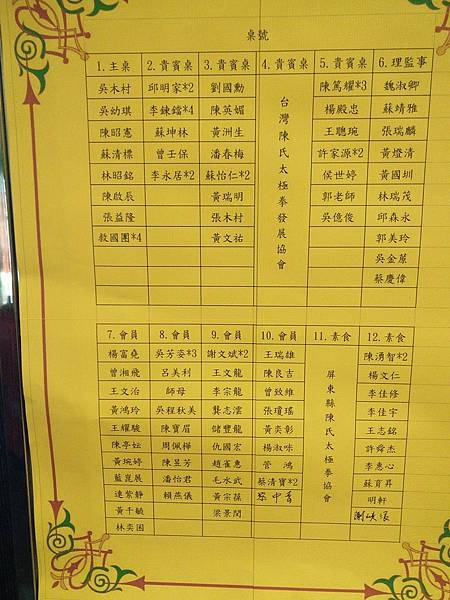 桌號
1.主桌 2.貴賓桌 3.貴賓桌 4.貴賓桌 5.貴賓桌 6.理監事
吳木村 邱明家*2 劉國勳 台灣陳氏太極拳發展協會 陳篤耀*3 魏淑卿
吳幼琪 李鍊鐺*4 陳英媚 楊殿忠 蘇靖雅
陳昭憲 蘇坤林 黃洲生 王聰琬 張瑞麟
蘇清標 曾壬保 潘春梅 許家源*2 黃燈清
林昭銘 李永居*2 蘇怡仁*2 侯世婷 黃國圳
陳啟辰 黃瑞明 郭老師 林瑞茂
張益隆 張木村 吳億俊 邱森永
救國團*4 黃文祐 郭美玲
吳金葲
蔡慶偉
7.會員 8.會員 9.會員 10.會員 11.素食 12.素食
楊富堯 吳芳姿*3 謝文斌*2 王瑞雄 屏東縣陳氏太極拳協會 陳湧智*2
曾湘飛 呂美利 王文龍 陳良吉 楊文仁
王文治 師母 李宗龍 曾致維 李佳修
黃鴻玲 吳程秋美 龔志澐 張瓊瑤 李佳宇
王耀駿 陳寶眉 儲豐龍 黃奕彰 王志銘
陳亭妘 周佩樺 仇國宏 楊淑咪 許舜杰
黃琬婷 陳昱芳 趙雀惠 管鴻 李惠心
藍崑展 潘怡君 毛水武 蔡清寶*2 蘇育昇
連紫靜 賴燕儀 黃宗葆 明軒
黃千毓 梁景閔
林奕囷